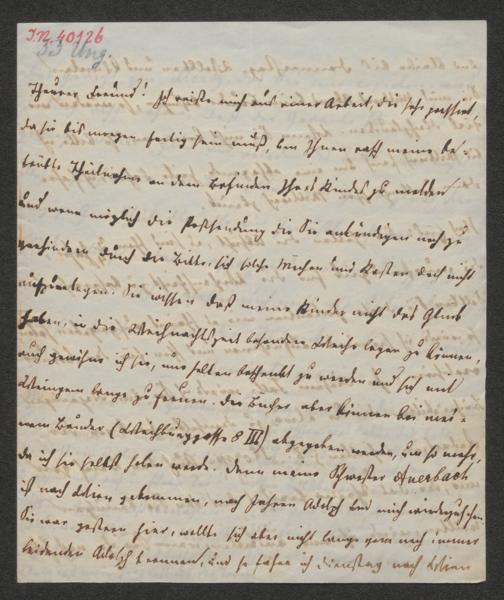 I.N. 40126
33 Ung.
Theurer Freund! Ich reiße mich aus einer Arbeit, die sehr pressirt,
da sie bis morgen fertig sein muß, um Ihnen rasch meine be-
trübte Theilnahme an dem Befinden Ihres Kindes zu melden
und wenn möglich die Postsendung die Sie ankündigen noch zu
verhindern durch die Bitte, sich solche Mühen und Kosten doch nicht
aufzuerlegen. Sie wissen daß meine Kinder nicht das Glück
haben, in die Weihnachtszeit besondern Werth legen zu können,
auch gewöhne ich sie, nur selten beschenkt zu werden und sich mit
Wenigem lange zu freuen. Die Bücher aber können bei mei-
nem Bruder (Weihburggasse 8 III) abgegeben werden, um so mehr,
da ich sie selbst holen werde. Denn meine Schwester Auerbach
ist nach Wien gekommen, nach Jahren Adolph und mich wiederzusehen
Sie war gestern hier, wollte sich aber nicht lange vom noch immer
leidenden Adolph trennen, und so fahre ich Dienstag nach Wien